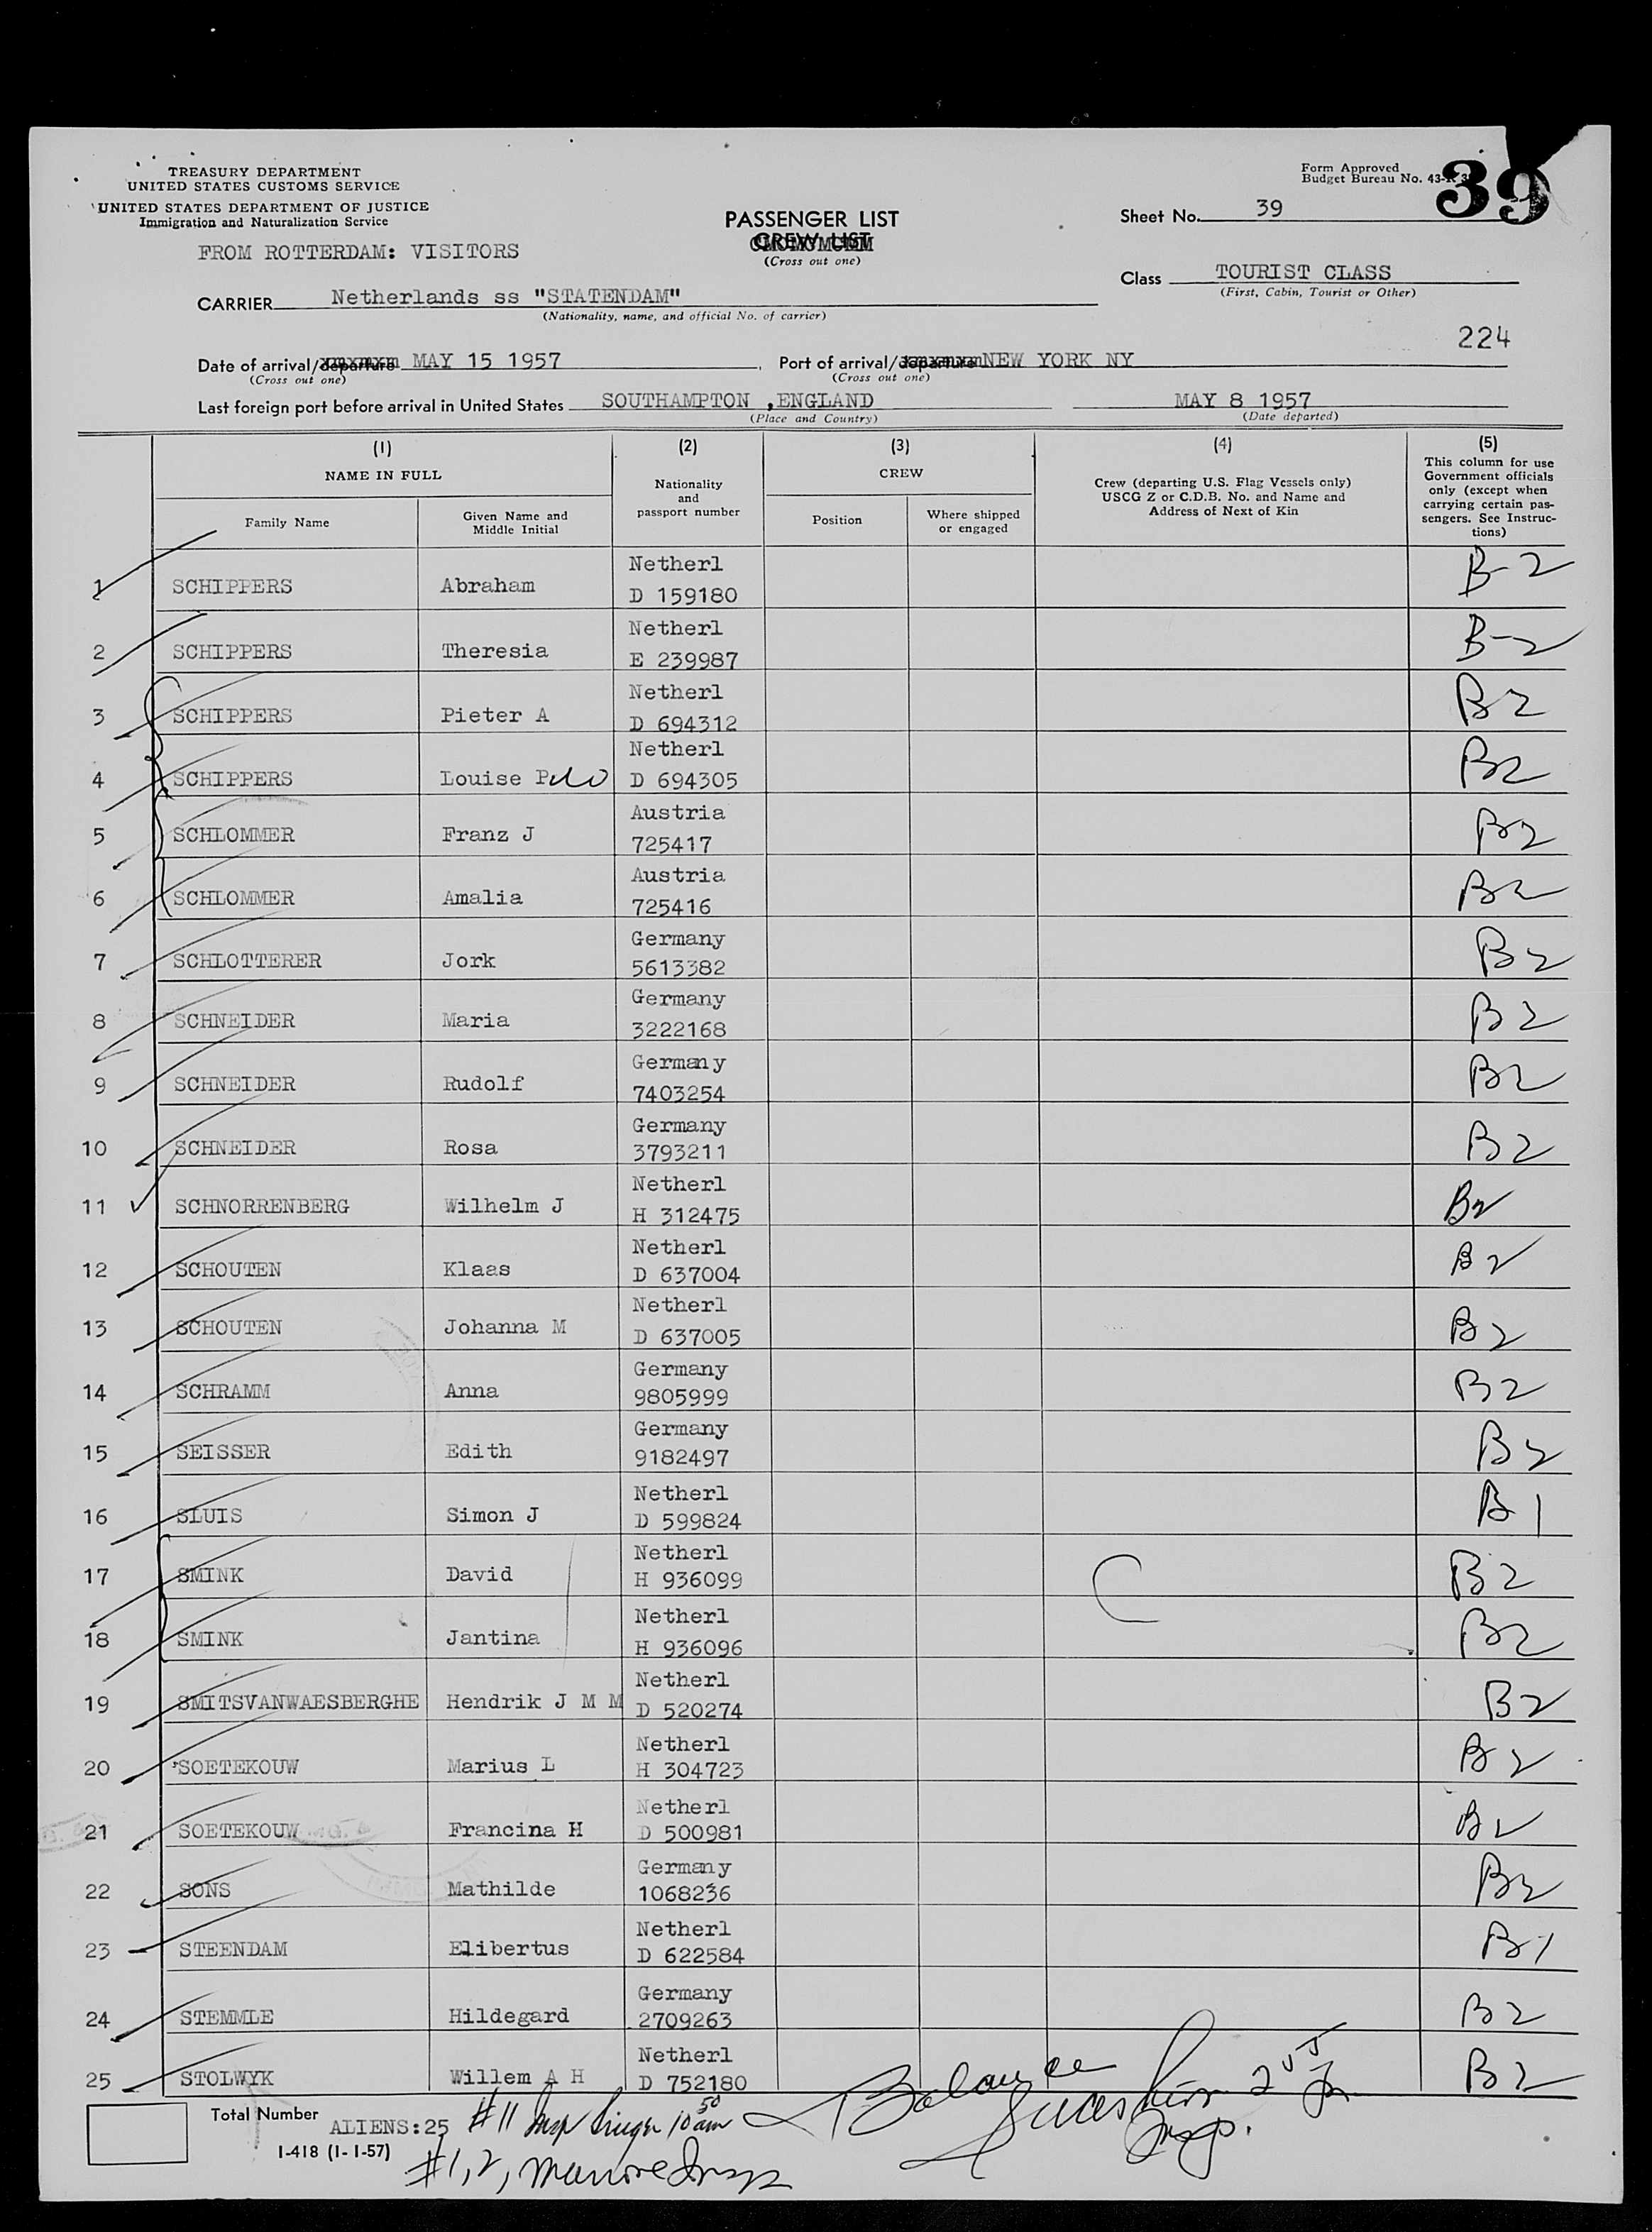 TREASURY DEPARTMENT
UNITED STATES CUSTOMS SERVICE
UNITED STATES DEPARTMENT OF JUSTICE
Immigration and Naturalization Service
FROM ROTTERDAM: VISITORS
PASSENGER LIST
CREW LIST
(Cross out one)
Form Approved
Budget Bureau No. 43-R
39
Sheet No. 39
Class TOURIST CLASS
(First, Cabin, Tourist or Other)
CARRIER Netherlands ss "STATENDAM"
(Nationality, name, and official No. of carrier)
224
Date of arrival/departure MAY 15 1957 Port of arrival/departure NEW YORK NY
(Cross out one) (Cross out one)
Last foreign port before arrival in United States SOUTHAMPTON ,ENGLAND MAY 8 1957
(Place and Country) (Date departed)
(1) (2) (3) (4) (5)
NAME IN FULL
Family Name
Given Name and Middle Initial
Nationality and passport number
CREW
Position
Where shipped or engaged
Crew (departing U.S. Flag Vessels only)
USCG Z or C.D.B. No. and Name and
Address of Next of Kin
This column for use
Government officials
only (except when
carrying certain pas-
sengers. See Instruc-
tions)
1 SCHIPPERS Abraham Netherl D 159180 B-2
2 SCHIPPERS Theresia Netherl E 239987 B-2
3 SCHIPPERS Pieter A Netherl D 694312 B2
4 SCHIPPERS Louise P Netherl D 694305 B2
5 SCHLOMMER Franz J Austria 725417 B2
6 SCHLOMMER Amalia Austria 725416 B2
7 SCHLOTTERER Jork Germany 5613382 B2
8 SCHNEIDER Maria Germany 3222168 B2
9 SCHNEIDER Rudolf Germany 7403254 B2
10 SCHNEIDER Rosa Germany 3793211 B2
11 SCHNORRENBERG Wilhelm J Netherl H 312475 B2
12 SCHOUTEN Klaas Netherl D 637004 B2
13 SCHOUTEN Johanna M Netherl D 637005 B2
14 SCHRAMM Anna Germany 9805999 B2
15 SEISSER Edith Germany 9182497 B2
16 SLUIS Simon J Netherl D 599824 B1
17 SMINK David Netherl H 936099 B2
18 SMINK Jantina Netherl H 936096 B2
19 SMITSVANWAESBERGHE Hendrik J M M Netherl D 520274 B2
20 SOETEKOUW Marius L Netherl H 304723 B2
21 SOETEKOUW Francina H Netherl D 500981 B2
22 SONS Mathilde Germany 1068236 B2
23 STEENDAM Elibertus Netherl D 622584 B1
24 STEMMLE Hildegard Germany 2709263 B2
25 STOLWYK Willem A H Netherl D 752180 B2
Total Number ALIENS:25 #11 Insp 10 50 am Balance
I-418 (1-1-57)
#1,2,